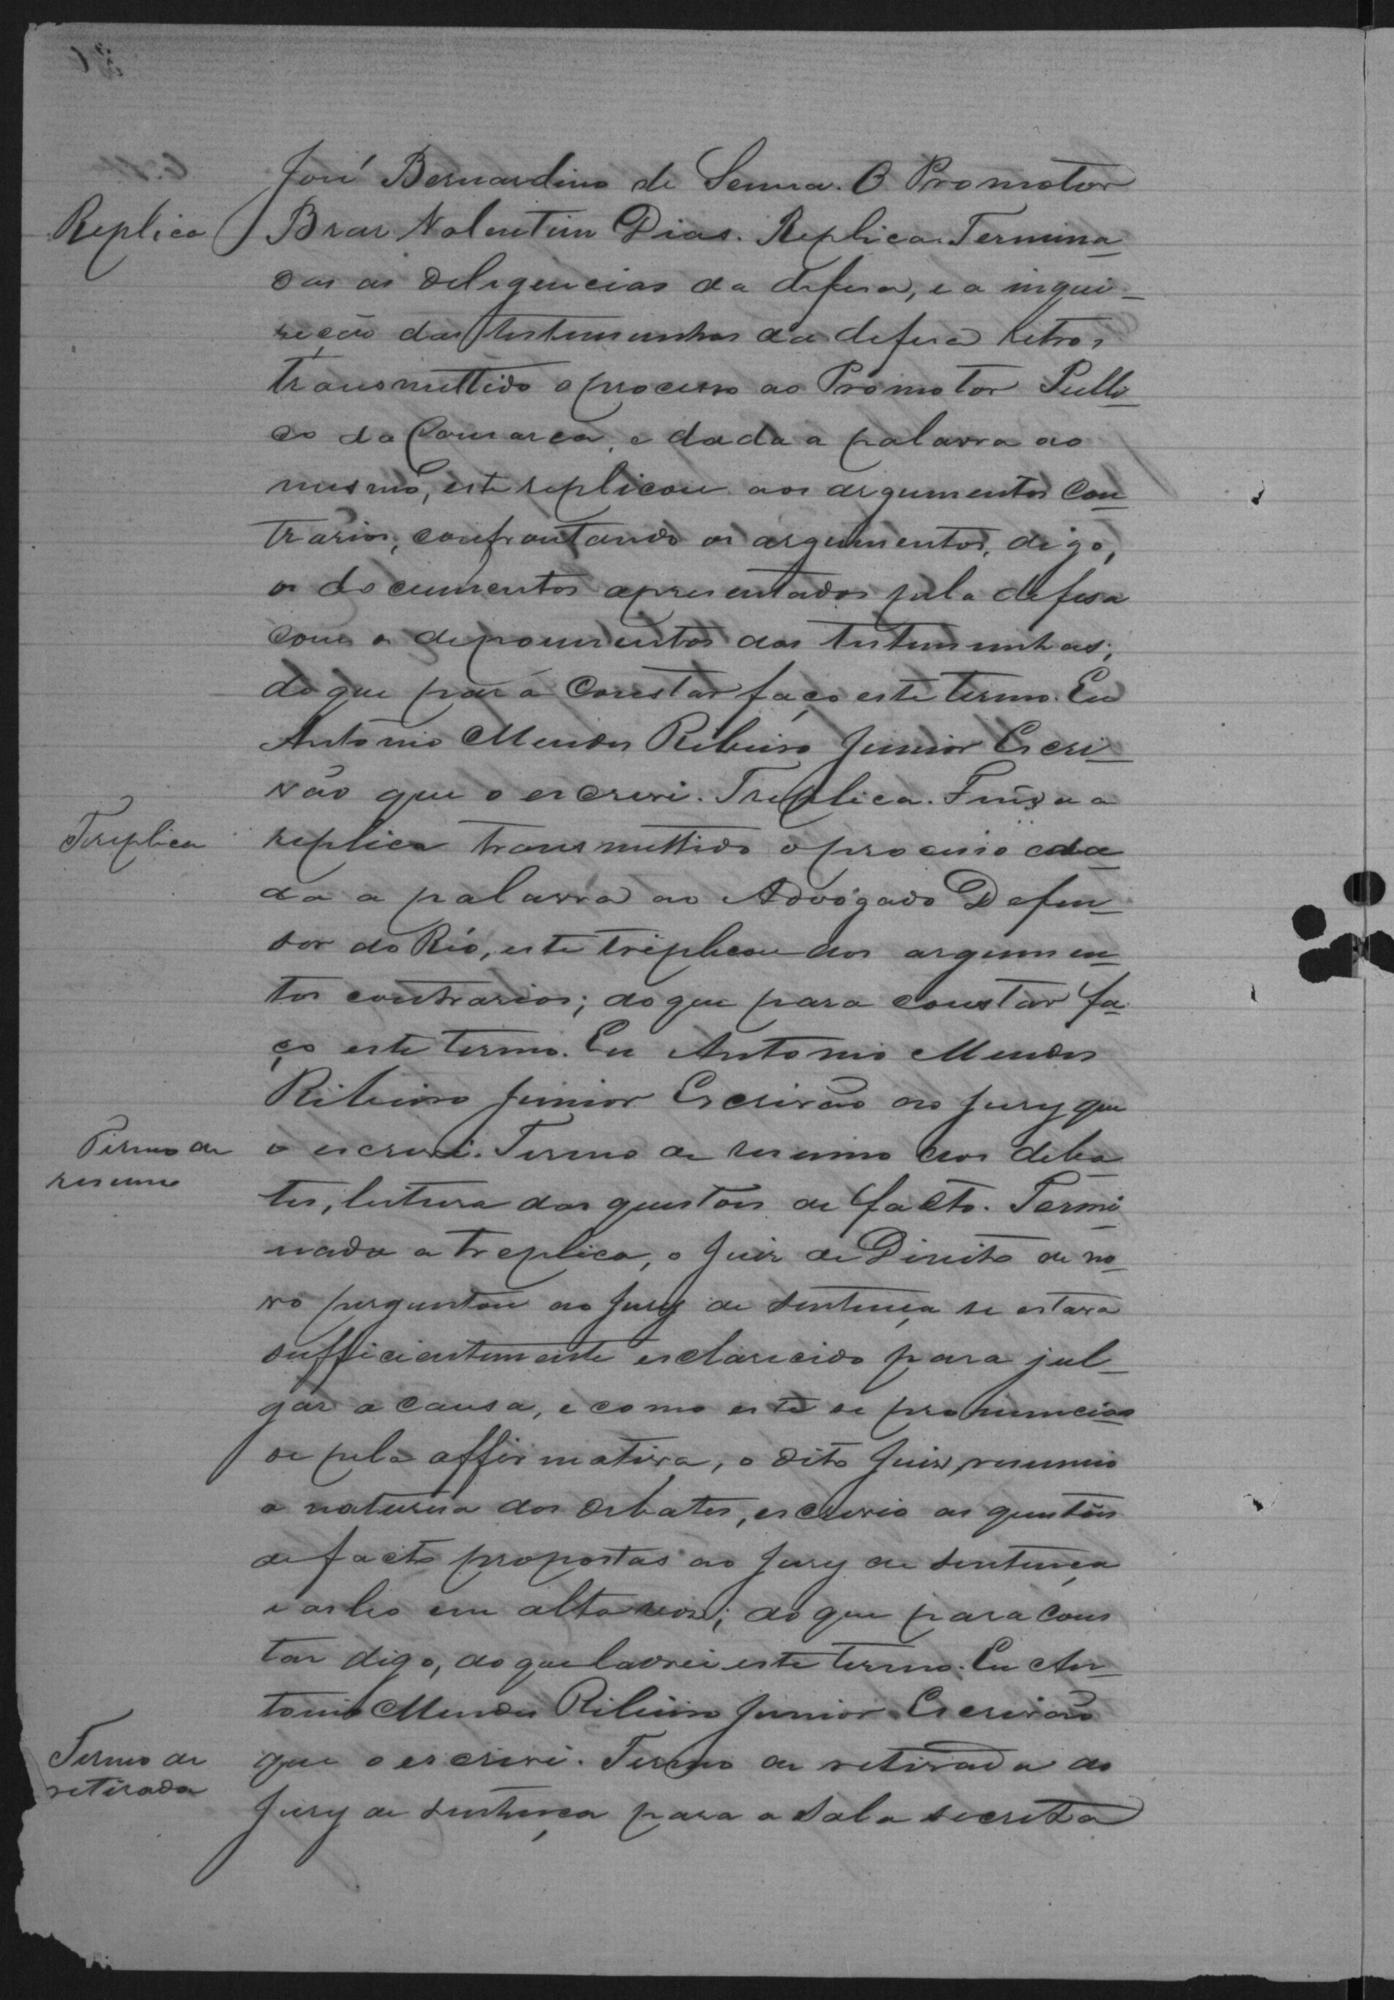 José Bernardino de Senna. O Promotor
Replica Braz Valentim Dias. Replica. Termina-
das as deligencias da defesa, e a inqui-
rição das testemunhas da defesa retro,
transmettido o processo ao Promotor Publi-
co da Comarca, e dada a palavra ao
mesmo, este replicou aos argumentos con-
trarios, confrontando os argumentos, digo,
os documentos apresentados pela defesa
com o depoimentos das testemunhas;
do que para constar faço este termo. Eu
Antonio Mendes Ribeiro Junior Escri-
vão que o escrevi. Treplica. Finda a
Treplica replica transmettido o processo e da-
da a palavra ao Advogado Defen-
sor do Réo, este treplicou aos argumen-
tos contrarios; do que para constar fa-
ço este termo. Eu Antonio Mendes
Ribeiro Junior Escrivão do Jury que
Termo de o escrevi. Termo de resumo dos deba-
resumo tes, leitura das questões de facto. Termi-
nada a treplica, o Juiz de Direito de no-
vo perguntou ao Jury de sentença se estava
sufficientemente esclarecido para jul-
gar a causa, e como este se pronuncias-
se pela affirmativa, o dito Juiz resumio
a materia dos debates, escrevio as questões
de facto propostas ao Jury de sentença
e as leo em alta voz; do que para cons
tar digo, do que lavrei este termo. Eu An-
tonio Mendes Ribeiro Junior Escrivão
Termo de que o escrevi. Termo de retirada do
retirada Jury de sentença para a sala secreta